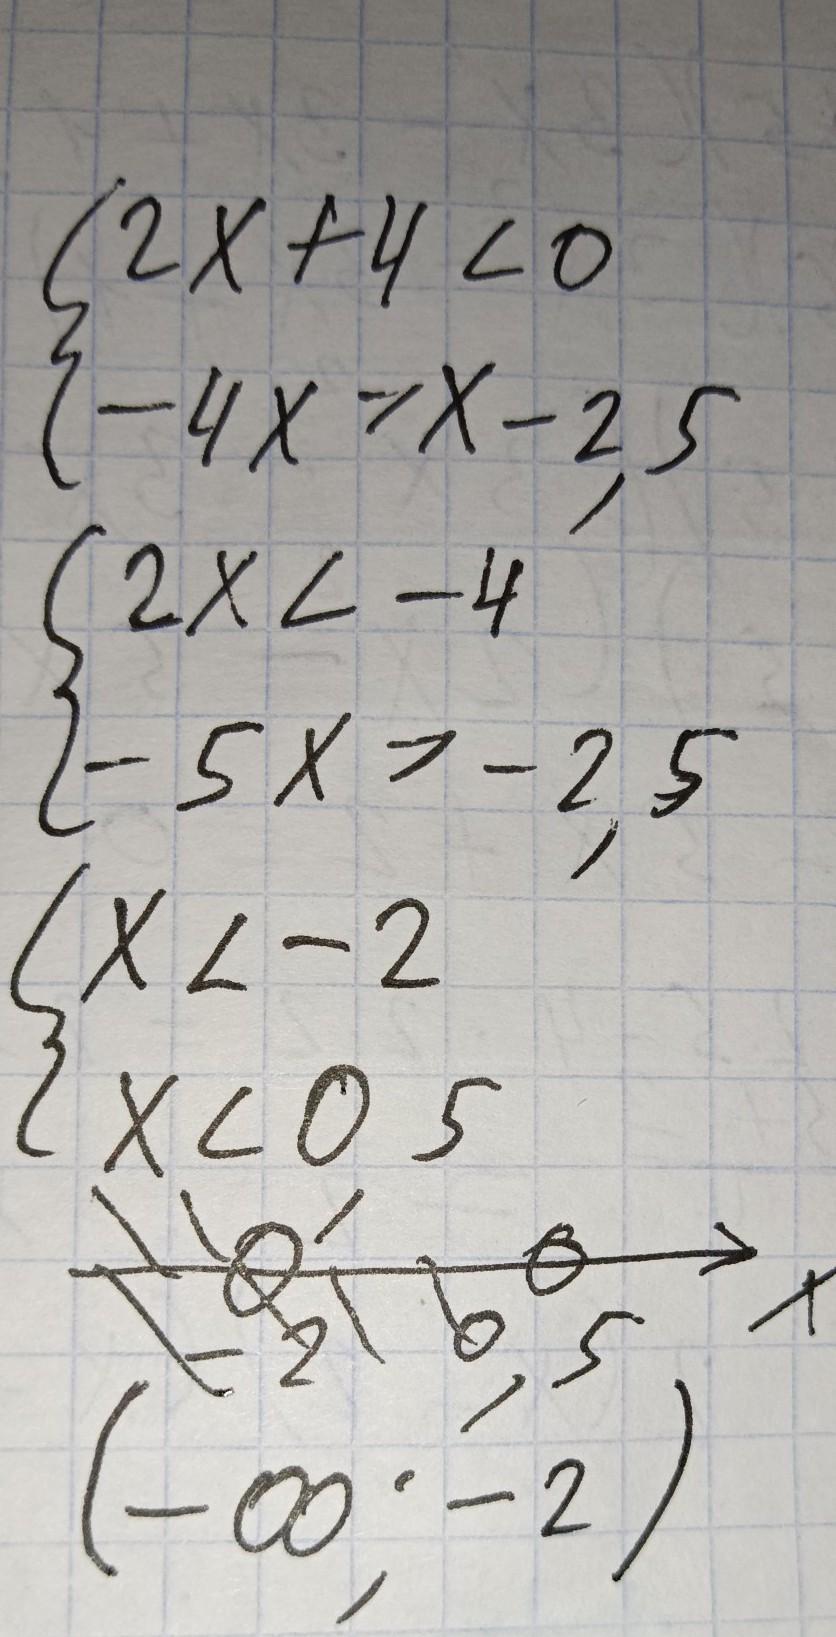 {2x+4<0
{-4x>x-2,5
{2x<-4
{-5x>-2,5
{x<-2
{x<0 5
-2 0,5 x
(-∞;-2)